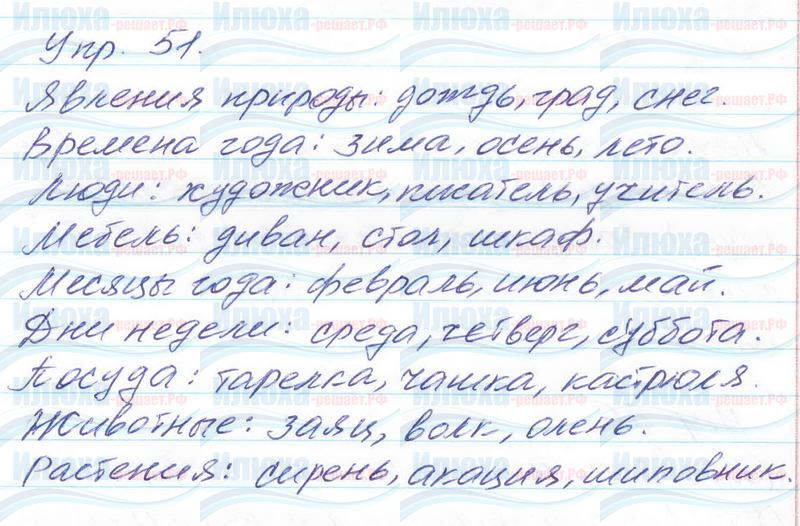 Упр. 51.
Явления природы: дождь, град, снег.
Времена года: зима, осень, лето.
Люди: художник, писатель, учитель.
Мебель: диван, стол, шкаф.
Месяцы года: февраль, июнь, май.
Дни недели: среда, четверг, суббота.
Посуда: тарелка, чашка, кастрюля.
Животные: заяц, волк, олень.
Растения: сирень, акация, шиповник.